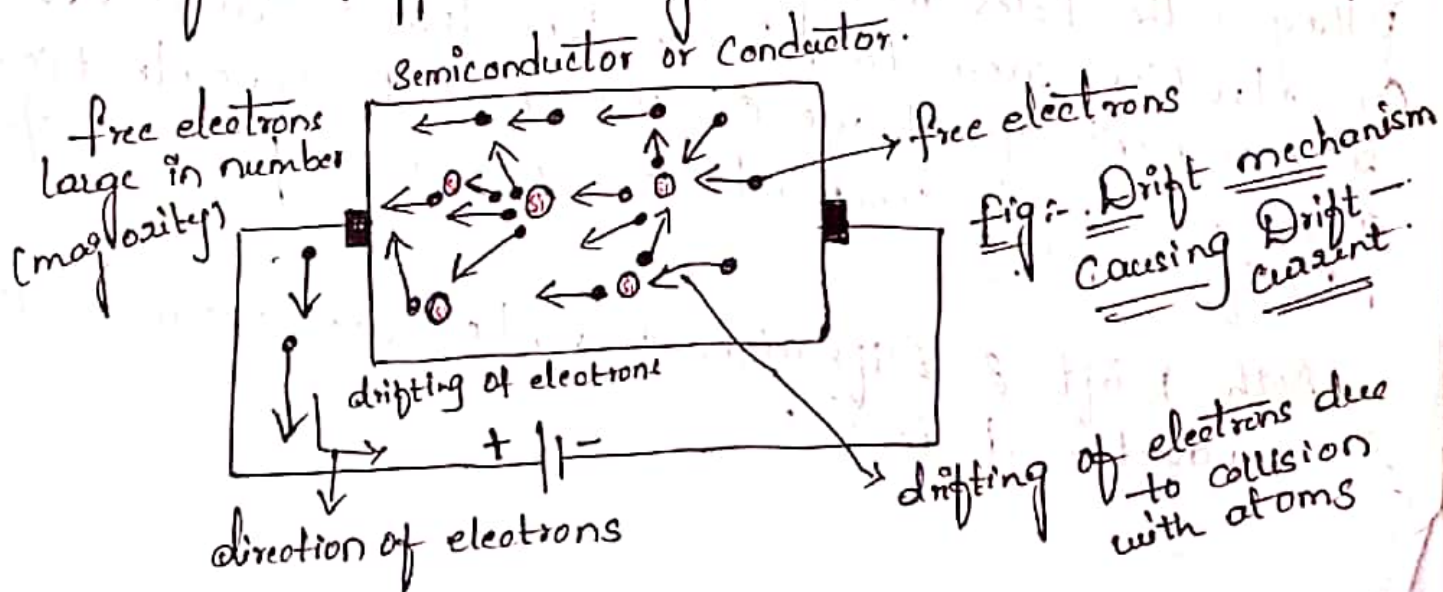 Semiconductor or Conductor.
free electrons
large in number
(majority)
free electrons
fig:- Drift mechanism
causing Drift –
current.
Si
Si
Si
drifting of electrons
+ -
direction of electrons
drifting of electrons due
to collision
with atoms